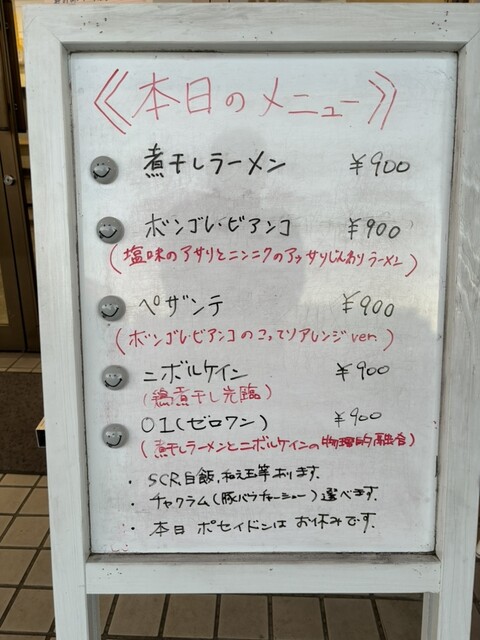 《本日のメニュー》
煮干しラーメン ￥900
ボンゴレ・ビアンコ ￥900
(塩味のアサリとニンニクのアッサリじんわりラーメン)
ペザンテ ￥900
(ボンゴレ・ビアンコのこってりアレンジver.)
ニボルケイン ￥900
(鶏煮干し光臨)
01(ゼロワン) ￥900
(煮干しラーメンとニボルケインの物理的融合)
・SCR白飯,和え玉等あります.
・チャクラム(豚バラチャーシュー)選べます.
・本日 ポセイドンは お休みです.